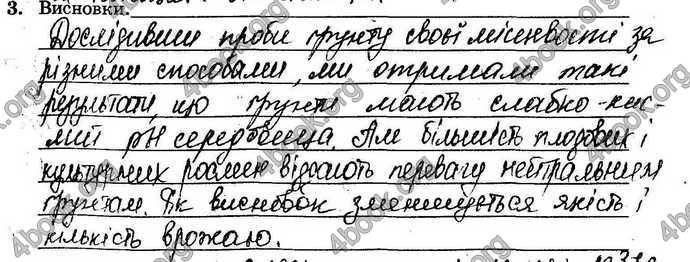 3. Висновки.
Дослідивши проби ґрунту своєї місцевості за
різними способами, ми отримали такі
результати, що ґрунти мають слабко-кис-
лий рН середовища. Але більшість плодових і
культурних рослин віддають перевагу нейтральним
ґрунтам. Як висновок зменшується якість і
кількість врожаю.